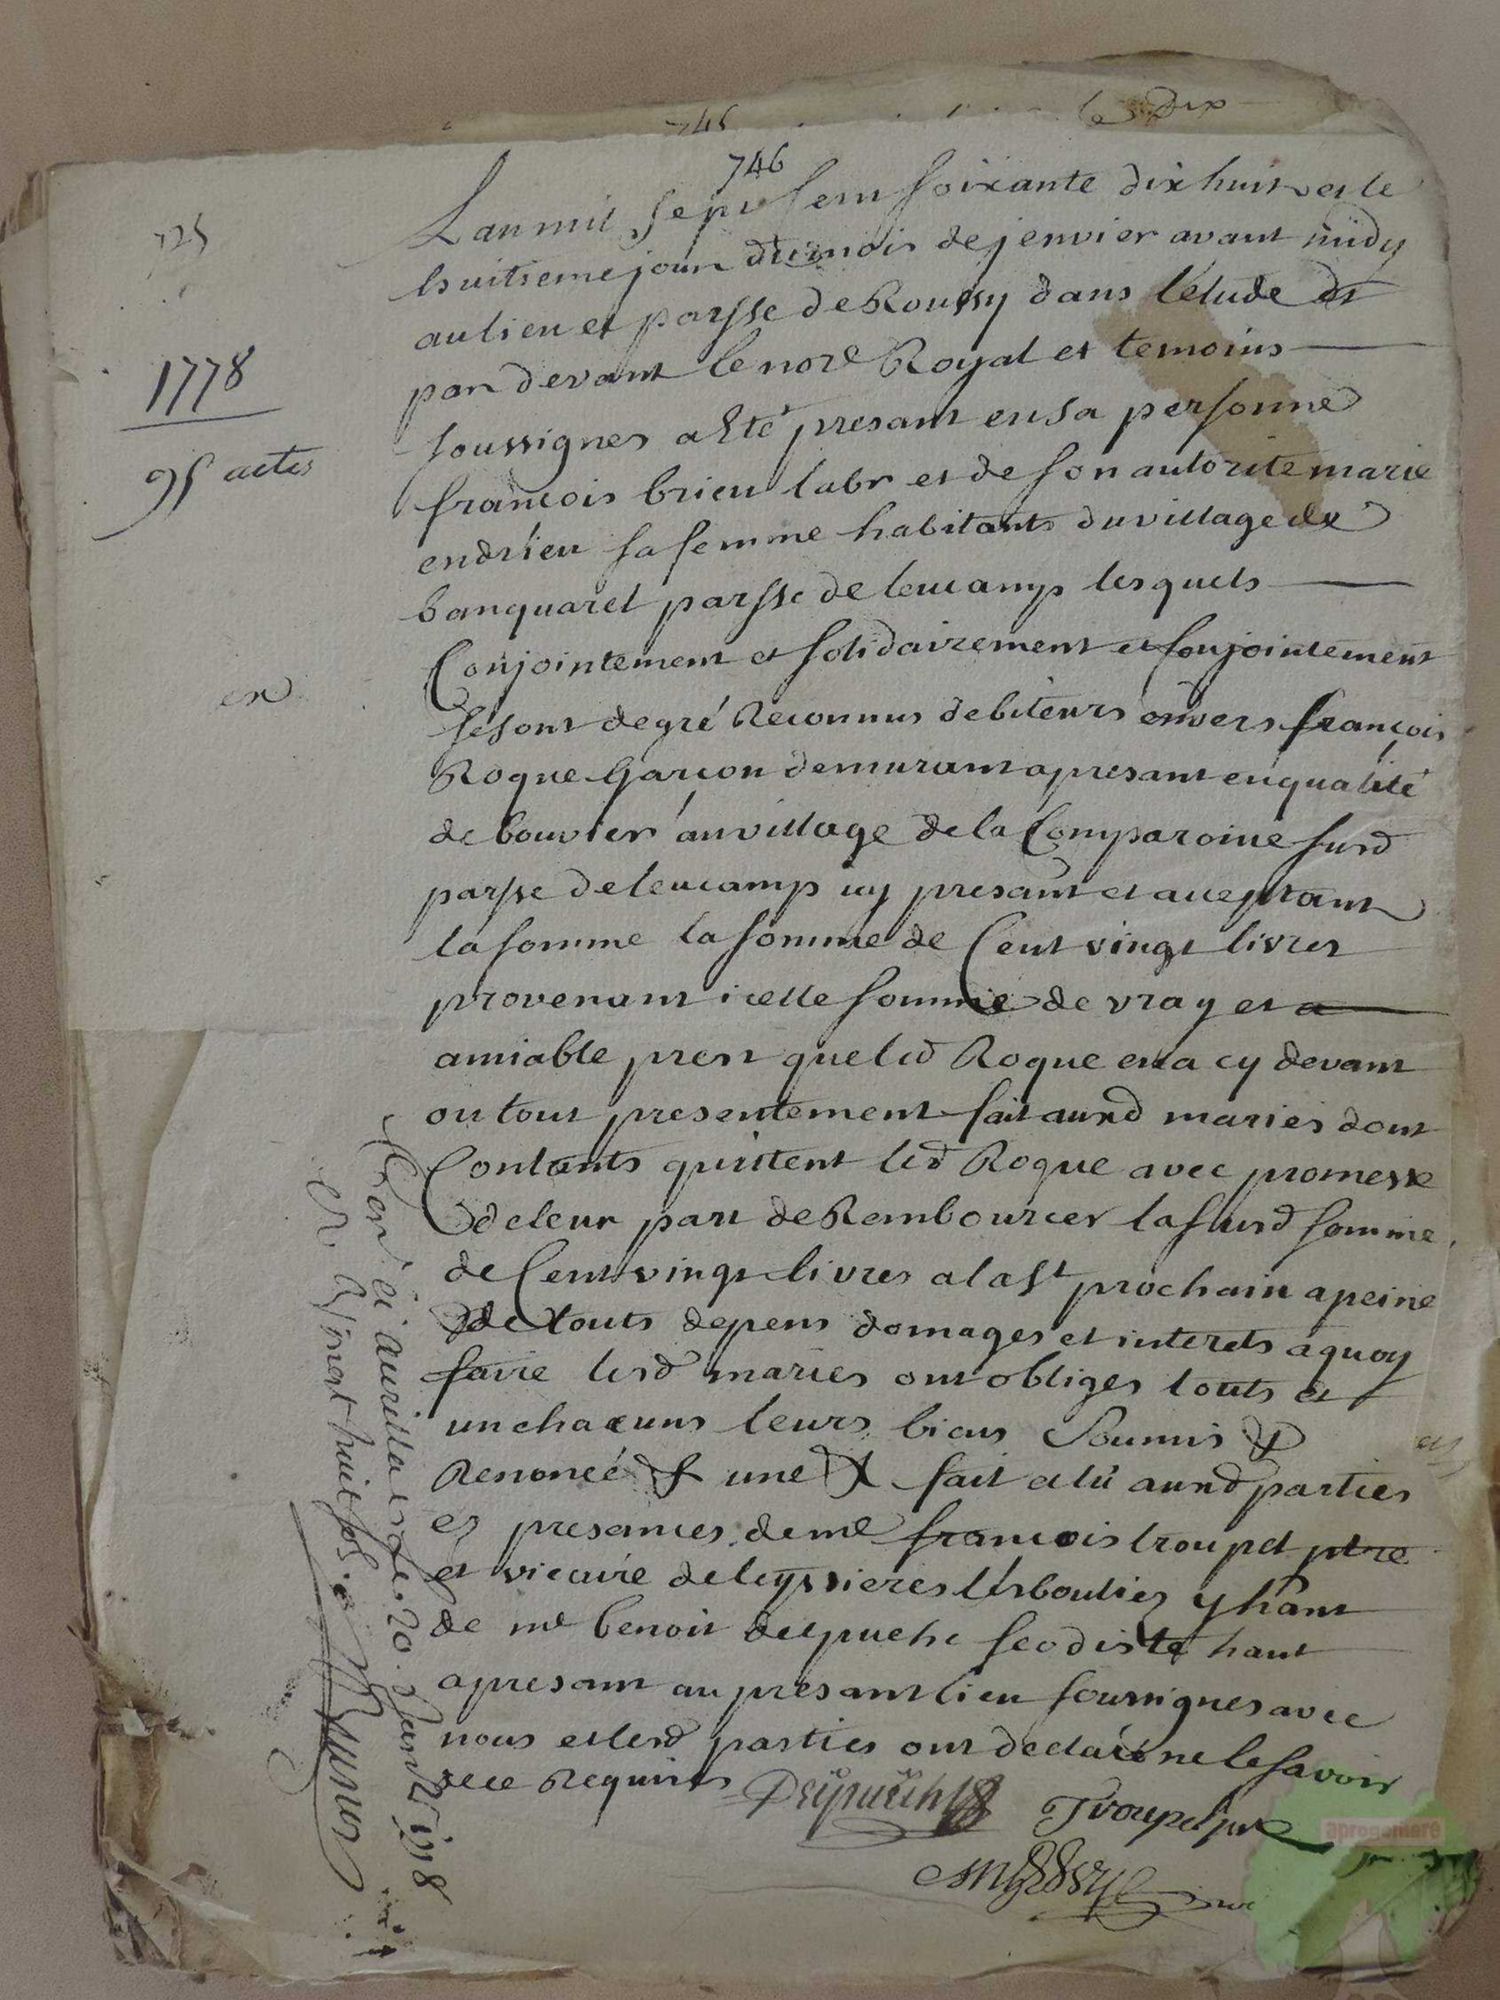 745
le Dix
746
L'an mil sept sent soixante dix huit et le
huitieme jour du mois de jenvier avant midy
au lieu et parsse de Roussy dans l'étude et
par devant le nore Royal et temoins
soussignes a été presant en sa personne
francois brieu labr et de son autorite marie
endrieu sa femme habitants du village de
banquarel parsse de leucamp lesquels
Conjointement et solidairement et conjointement
se sont de gré Reconnus debiteurs envers françois
Roque garçon demurant apresant en qualité
de bouvier au village de la Comparoine susd
parsse de leucamp icy presant et acceptant
la somme la somme de Cent vingt livres
provenant icelle somme de vray et a
amiable prest que led Roque en a cy devant
ou tout presentement fait auxd maries dont
Contants quittent led Roque avec promesse
de leur part de Rembourcer la susd somme
de Cent vingt livres a la st prochain a peine
de touts depens domages et interets a quoy
faire lesd maries ont obliges touts et
un chacuns leurs biens Soumis &
Renoncé & une & fait et lû auxd parties
ez presances de me francois troupel ptre
et vicaire de leyssieres lesboulies y hant
de me benoit delpuehc feodiste hant
apresant au presant lieu soussignes avec
nous et lesd parties ont declaré ne le savoir
de ce Requires
Troupel ptre
725
1778
95 actes
ex
Con. éi aurilla et le 20. Janv. 1778
R. quinze huit sols
aprogemere